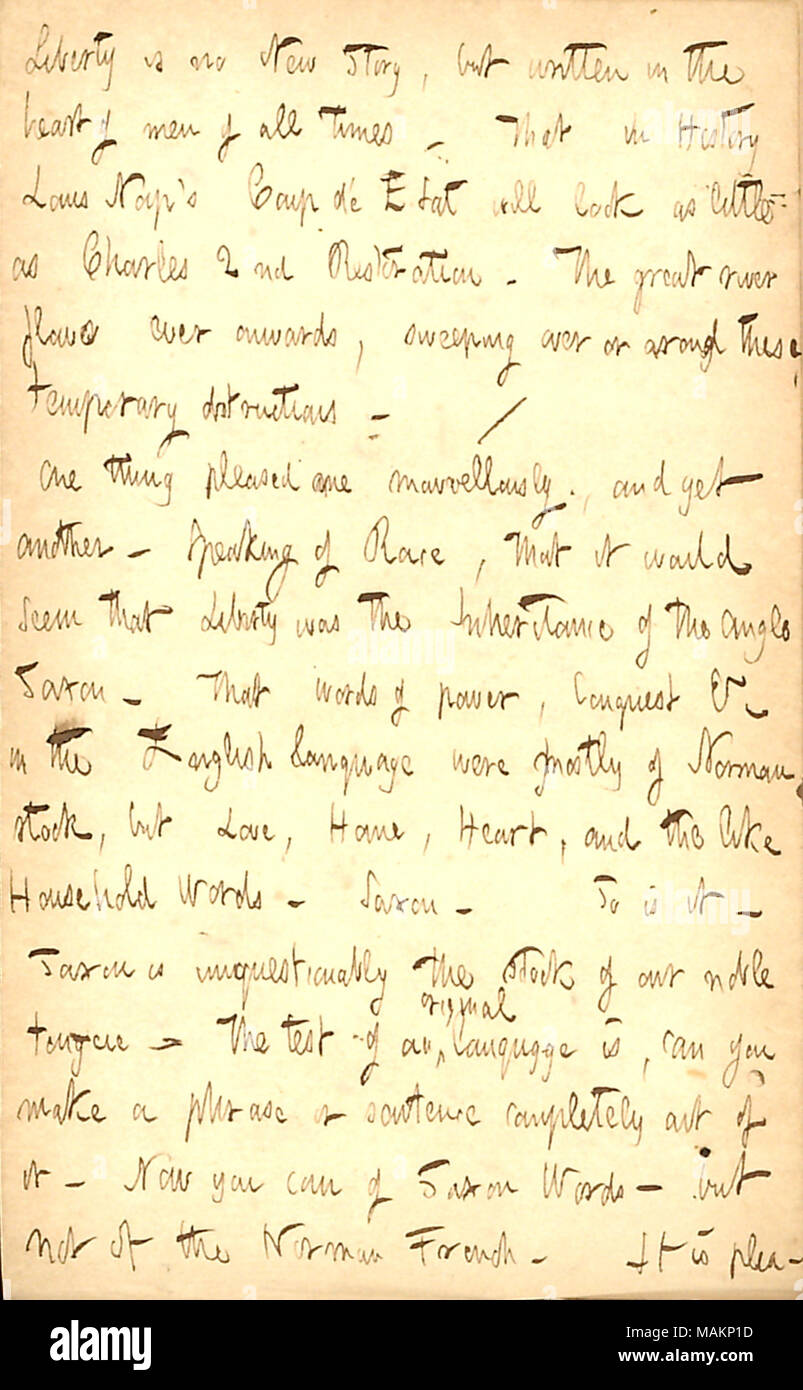 Liberty is no New Story, but written in the
heart of men of all times - That in History
Louis Nap's Coup de Etat will look as little
as Charles 2nd Restoration - The great river
flows ever onwards, sweeping over or around these
temporary obstructions -
One thing pleased me marvellously, and yet
another - Speaking of Race, that it would
seem that Liberty was the Inheritance of the Anglo
Saxon - That words of power, Conquest &c
in the English language were mostly of Norman
stock, but Love, Home, Heart, and the like
Household Words - Saxon - So is it -
Saxon is unquestionably the stock of our noble
tongue - The test of an original language is, can you
make a phrase or sentence completely out of
it - Now you can of Saxon Words - but
not of the Norman French - It is plea-
alamy
Image ID: MAKP1D
www.alamy.com